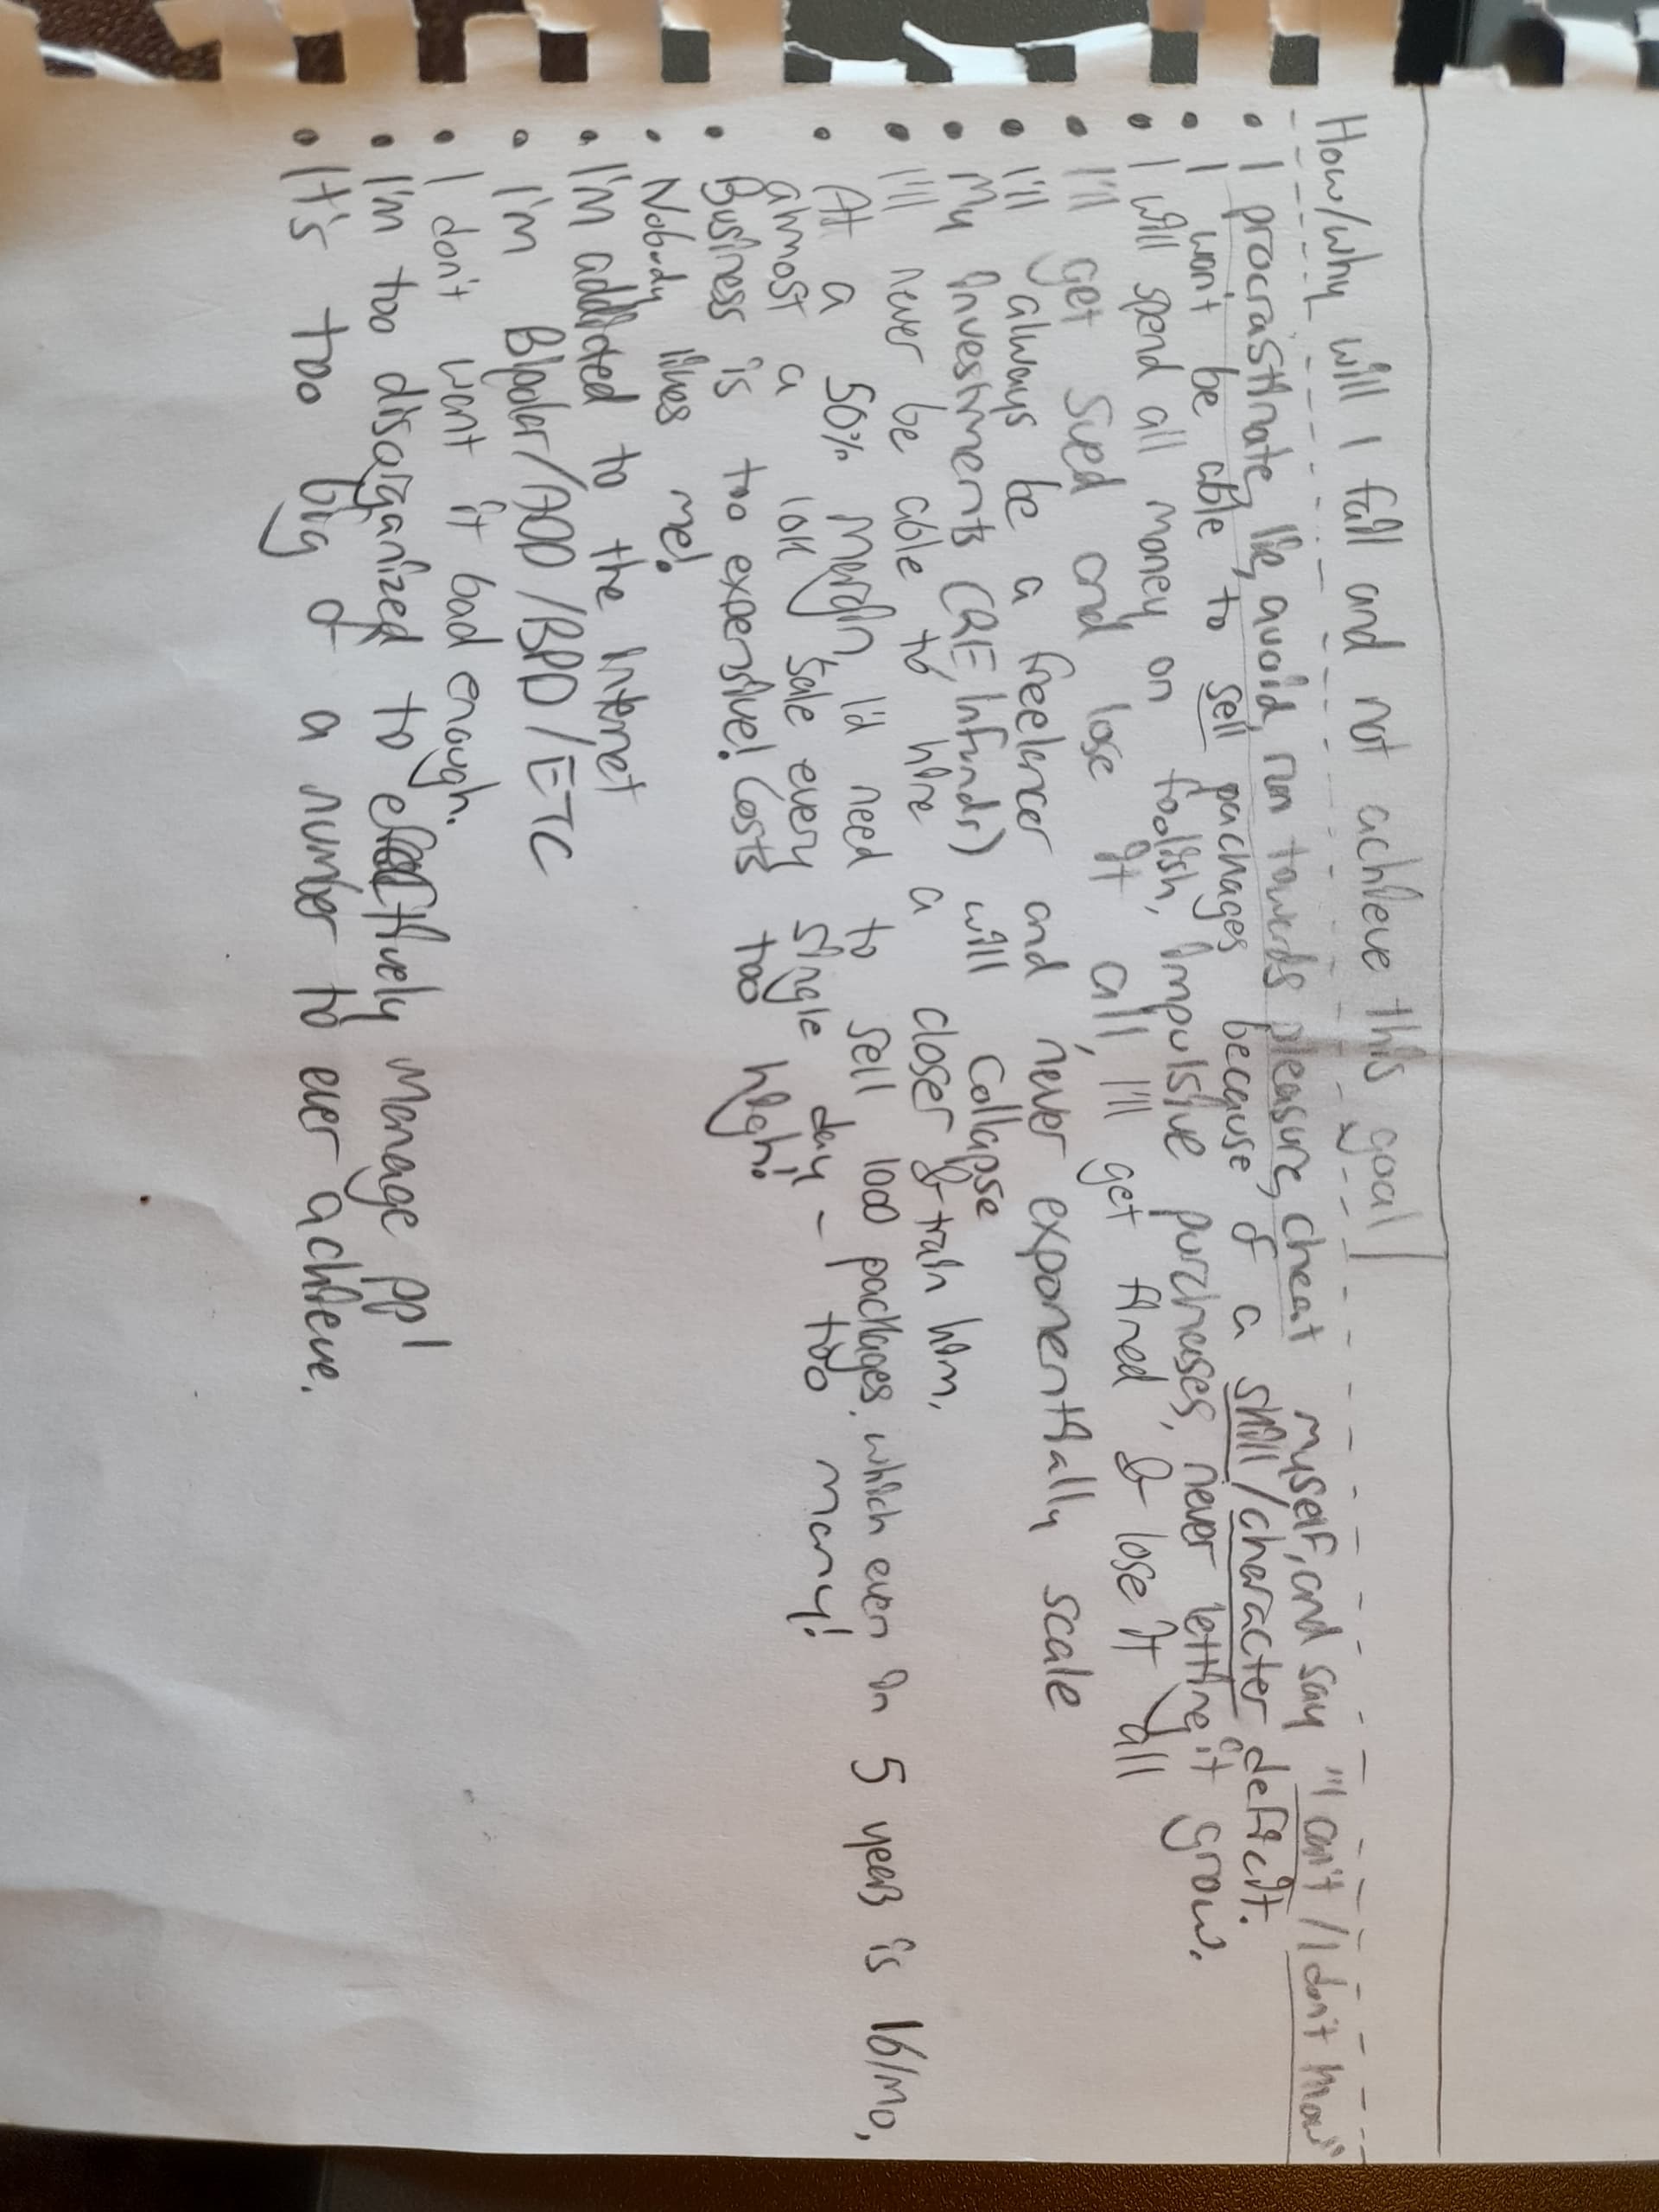 How/why will I fail and not achieve this goal
• I procrastinate, lie, avoid, run towards pleasure, cheat myself, and say "I can't / I don't know"
• I won't be able to sell packages because of a skill/character deficit.
• I will spend all money on foolish, impulsive purchases, never letting it grow.
• I'll get sued and lose it all, I'll get fired & lose it all
• I'll always be a freelancer and never exponentially scale
• My investments (RE, Infunds) will collapse
• I'll never be able to hire a closer & train him.
• At a 50% margin, I'd need to sell 1000 packages, which even in 5 years is 16/mo,
almost a 10K sale every single day - too many!
• Business is too expensive! Costs too high!
• Nobody likes me!
• I'm addicted to the internet
• I'm Bipolar/ADD/BPD/ETC
• I don't want it bad enough.
• I'm too disorganized to effectively manage ppl
• It's too big of a number to ever achieve.